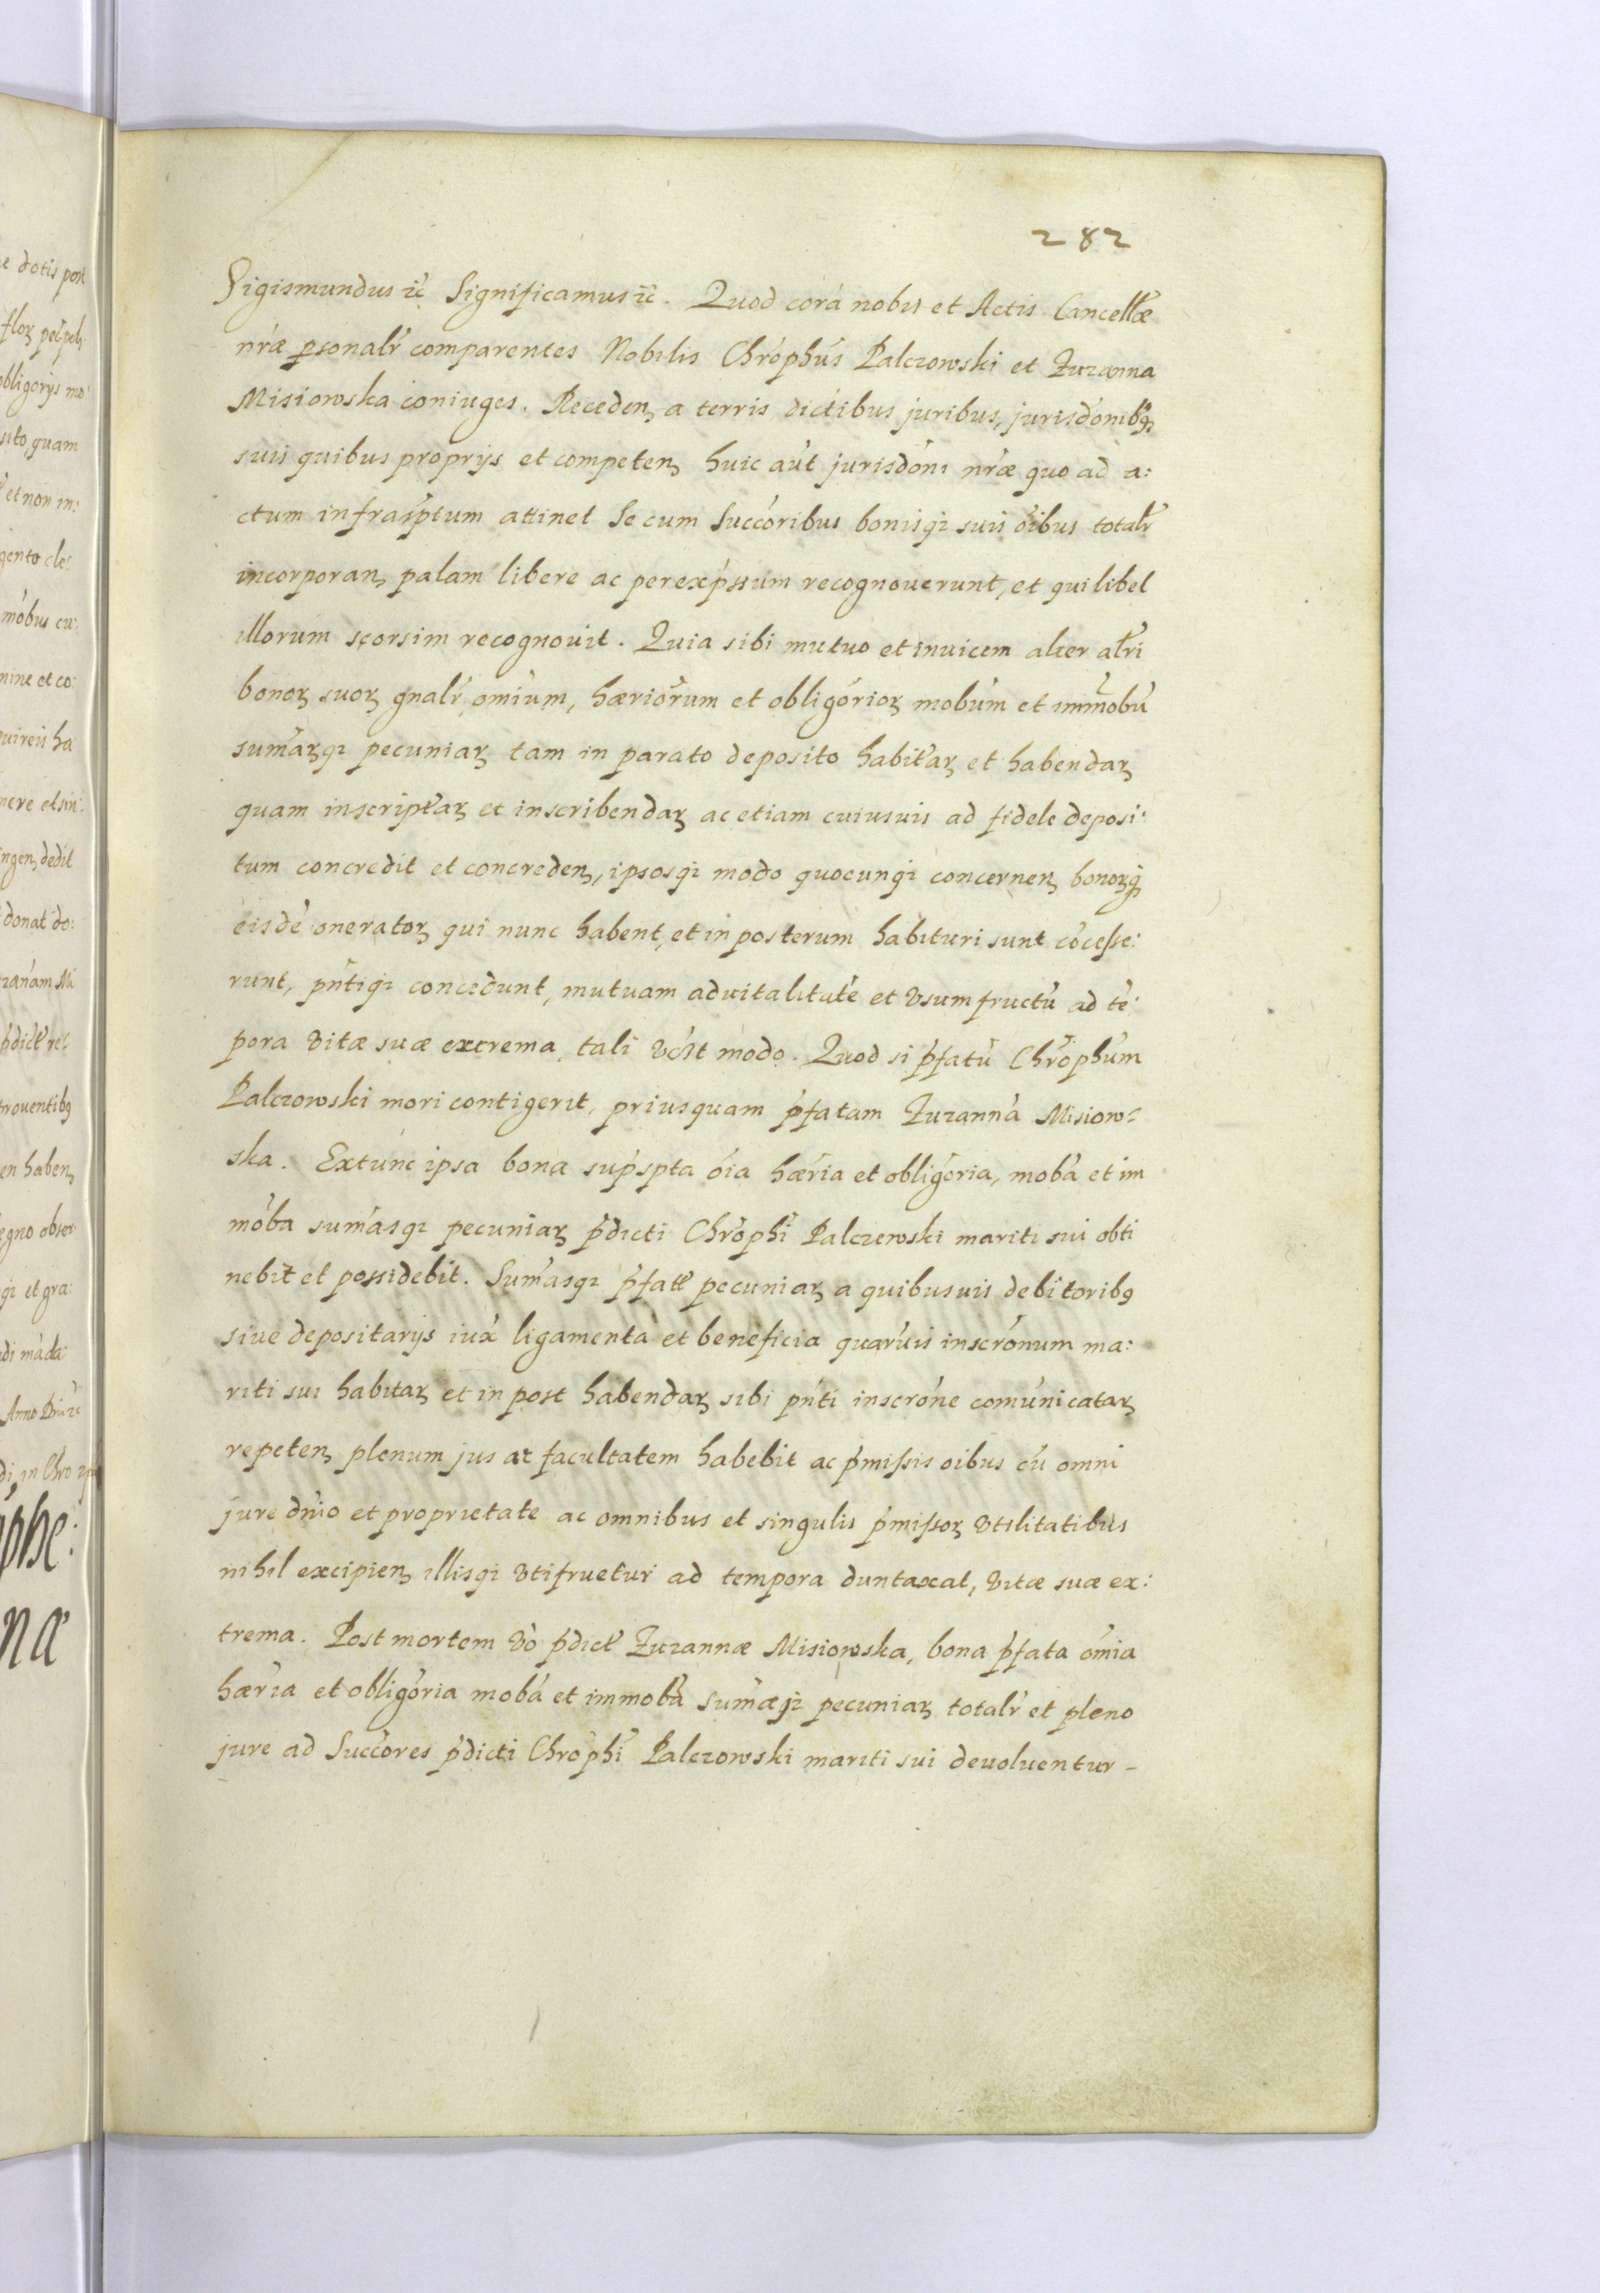 282
Sigismundus ꝛc̃ Significamus ꝛc̃. Quod corã nobis et Actis Cancellӕ
nr̃ӕ ꝑsonalr̃ comparentes Nobilis Chr̃ophus Palczowski et Zuzanna
Misiowska coniuges. Recedenꝫ a terris dictibus juribus, jurisdõnibꝰ
suis quibus proprijs et competenꝫ huic aũt jurisdõni nr̃ӕ quo ad a:
ctum infrasp̃tum attinet Se cum Succõribus bonisqꝫ suis õibus totalr̃
incorporanꝫ palam libere ac per exp̃ssum recognouerunt, et quilibet
illorum seorsim recognouit. Quia sibi mutuo et inuicem alter alr̃i
bonoꝝ suoꝝ gnalr̃ omium, hӕriõrum et obligõrioꝝ mobũm et immobũ
sum̃aꝝqꝫ pecuniaꝝ tam in parato deposito habitaꝝ et habendaꝝ
quam inscriptaꝝ et inscribendaꝝ ac etiam cuiusuis ad fidele deposi:
tum concredit et concredenꝫ, ipsosqꝫ modo quocunqꝫ concernenꝫ bonoꝝqꝫ
eisdẽ oneratoꝝ qui nunc habent, et in posterum habituri sunt cõcesse:
runt, pñtiqꝫ concedunt, mutuam aduitalitatẽ et vsumfructũ ad tẽ:
pora vitӕ suӕ extrema, tali vc̃lt modo. Quod si p̃fatũ Chr̃ophum
Palczowski mori contigerit, priusquam p̃fatam Zuzannã Misiow:
ska. Extunc ipsa bona sup̃spta õia hӕr̃ia et obligõria, mobã et im
mobã sum̃asqꝫ pecuniaꝝ p̃dicti Chr̃ophi Palczewski mariti sui obti
nebit et possidebit. Sum̃asqꝫ p̃fatt̃ pecuniaꝝ a quibusuis debitoribꝰ
siue depositarijs iux̃ ligamenta et beneficia quarũuis inscrõnum ma:
riti sui habitaꝝ et in post habendaꝝ sibi pñti inscrõne comũnicataꝝ
repetenꝫ plenum jus ac facultatem habebit ac p̃missis oibus cũ omni
jure dñio et proprietate ac omnibus et singulis p̃missoꝝ vtilitatibus
nihil excipienꝫ illisqꝫ vtifruetur ad tempora duntaxat, vitӕ suӕ ex:
trema. Post mortem vo p̃dict̃ Zuzannӕ Misiowska, bona p̃fata omia
hӕr̃ia et obligõria mobã et immobã sum̃ӕqꝫ pecuniaꝝ totalr̃ et pleno
jure ad Succõres p̃dicti Chr̃ophi Palczowski mariti sui deuoluentur –